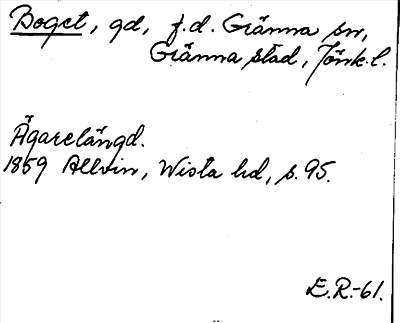 Boget, gd, f.d. Gränna sn,
Gränna stad, Jönk.l.
Ägarelängd.
1859 Allvin, Wista hd, s. 95.
E.R.-61.